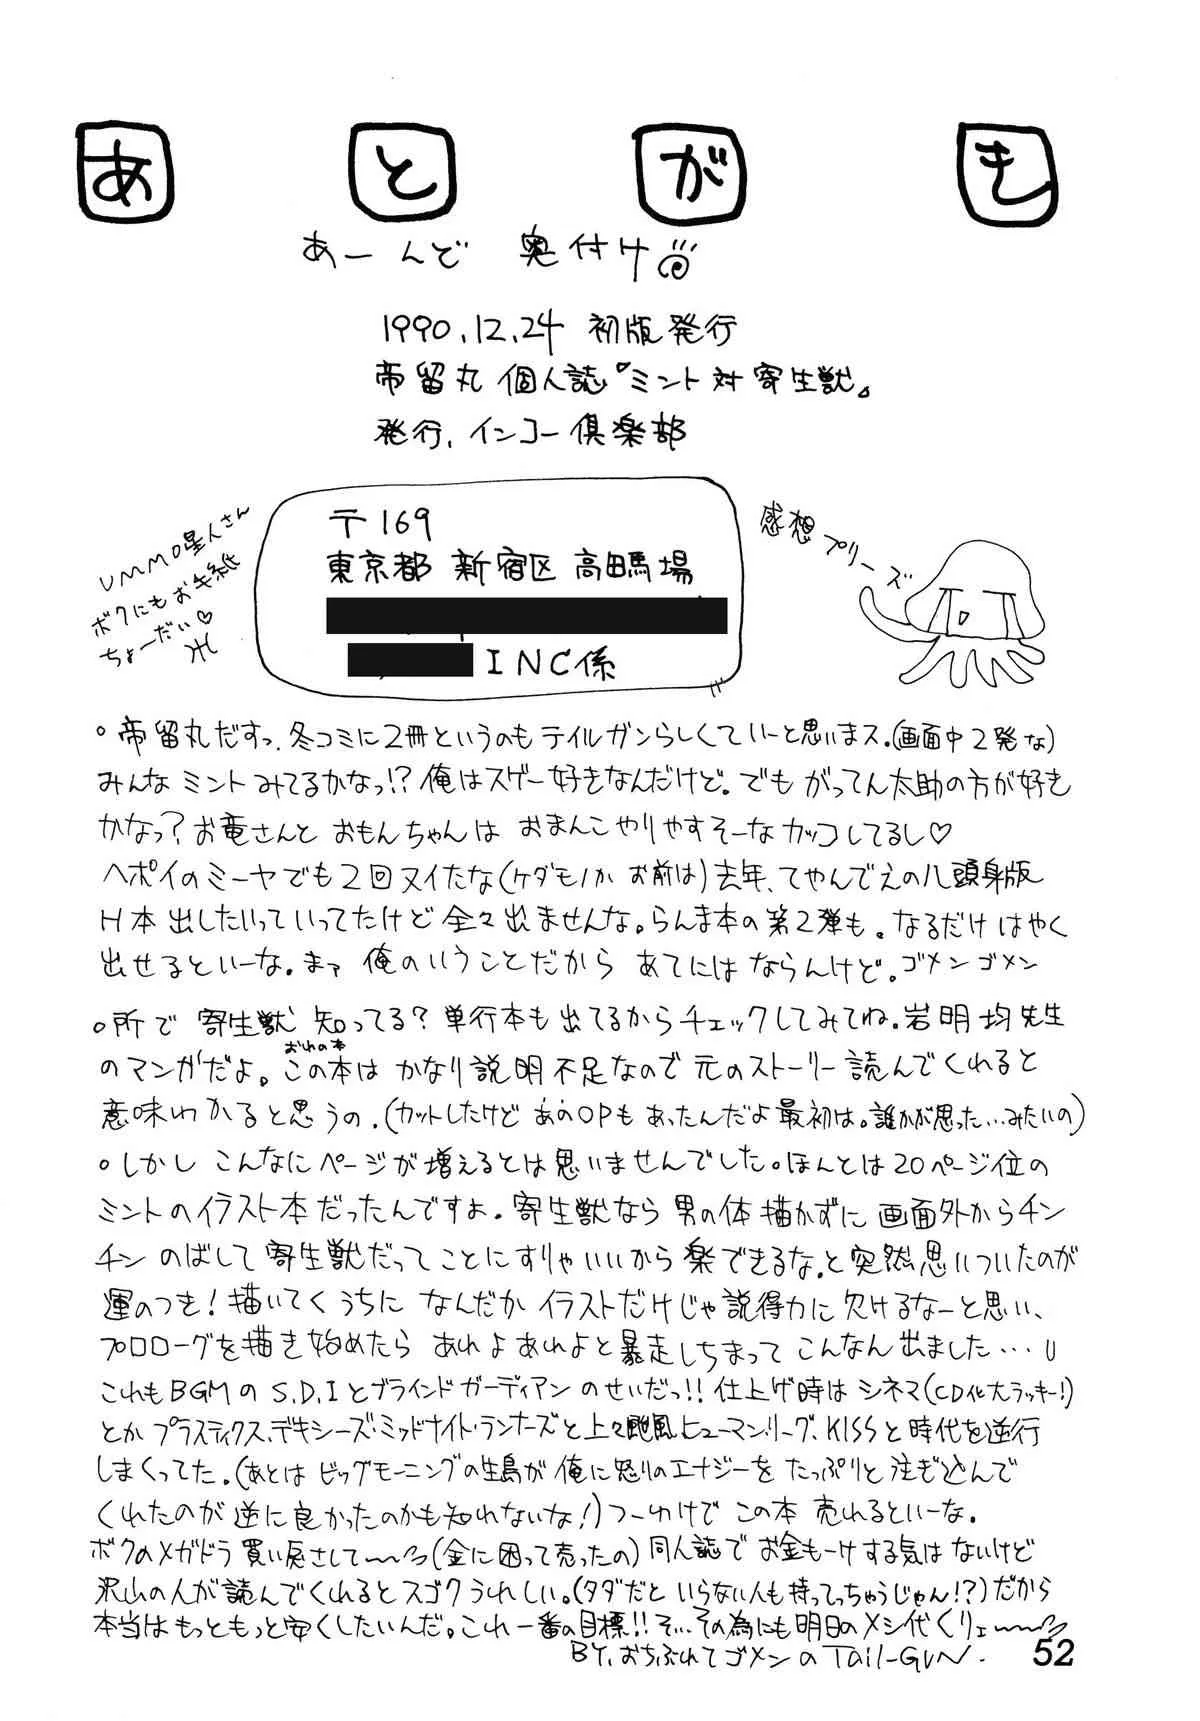 あとがき
あーんど 奥付け
1990.12.24 初版発行
帝留丸 個人誌『ミント対寄生獣』
発行、インコー倶楽部
〒169
東京都 新宿区 高田馬場
INC係
UMMO星人さん
ボクにもお手紙
ちょーだい♡
感想プリーズ
○帝留丸だすっ、冬コミに2冊というのもテイルガンらしくていーと思いまス。(画面中2発な)
みんなミントみてるかなっ!?俺はスゲー好きなんだけど。でもがってん太助の方が好き
かなっ?お竜さんとおもんちゃんはおまんこやりやすそーなカッコしてるし♡
ヘポイのミーヤでも2回ヌイたな(ケダモノか お前は)去年、てやんでえの八頭身版
H本出したいっていってたけど全々出ませんな。らんま本の第2弾も。なるだけはやく
出せるといーな。まァ俺のいうことだからあてにはならんけど。ゴメンゴメン
○所で寄生獣知ってる?単行本も出てるからチェックしてみてね。岩明均先生
のマンガだよ。この本(おれの本)はかなり説明不足なので元のストーリー読んでくれると
意味わかると思うの.(カットしたけどあのOPもあったんだよ最初は。誰かが思った…みたいの)
○しかしこんなにページが増えるとは思いませんでした。ほんとは20ページ位の
ミントのイラスト本だったんですよ。寄生獣なら男の体描かずに画面外からチン
チンのばして寄生獣だってことにすりゃいいから楽できるな。と突然思いついたのが
運のつき!描いてくうちになんだかイラストだけじゃ説得力に欠けるなーと思い、
プロローグを描き始めたらあれよあれよと暴走しちまってこんなん出ました…
これもBGMのS.D.Iとブラインドガーディアンのせいだっ!!仕上げ時はシネマ(CD化大ラッキー!)
とかプラスティクス、デキシーズ・ミッドナイト・ランナーズと上々颱風、ヒューマン・リーグ、KISSと時代を逆行
しまくってた。(あとはビッグモーニングの生島が俺に怒りのエナジーをたっぷりと注ぎ込んで
くれたのが逆に良かったのかも知れないな!)つーわけでこの本売れるといーな。
ボクのメガドラ買い戻さして〜(金に困って売ったの)同人誌でお金もーけする気はないけど
沢山の人が読んでくれるとスゴクうれしい。(タダだといらない人も持ってっちゃうじゃん!?)だから
本当はもっともっと安くしたいんだ。これ一番の目標!!そ…その為にも明日のメシ代くりェ〜
BY.おちぶれてゴメンのTail-GuN.
52